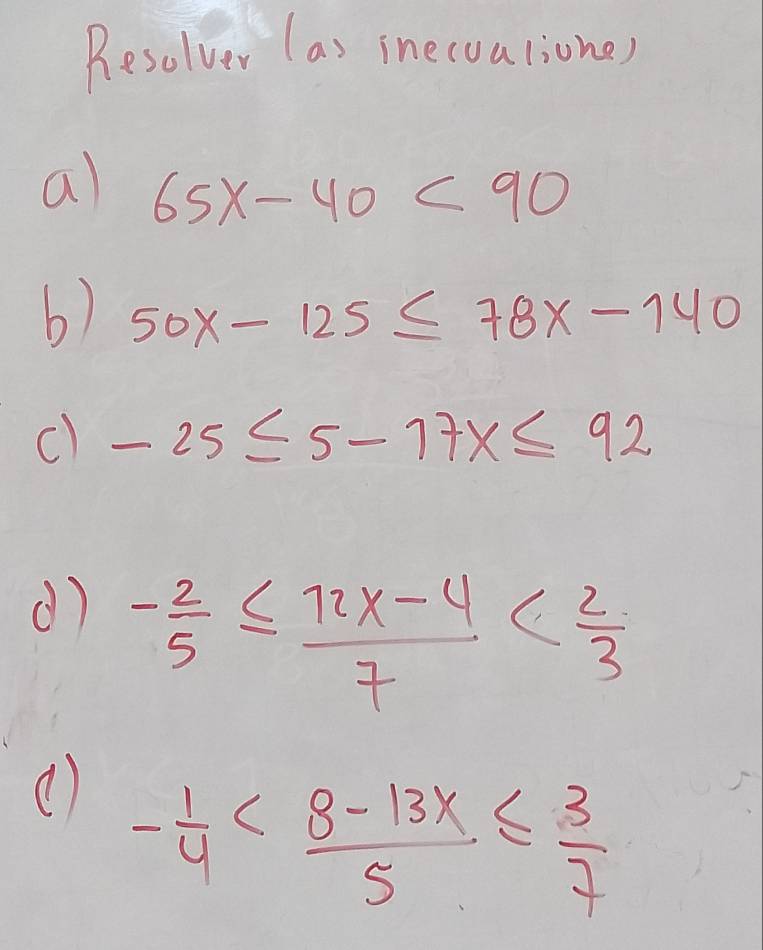 Resolver las inecuaciones
a) 65x - 40 < 90
b) 50x - 125 ≤ 78x - 140
c) - 25 ≤ 5 - 17x ≤ 92
d) -2/5 ≤ (12x - 4)/7 < 2/3
e) -1/4 < (8 - 13x)/5 ≤ 3/7